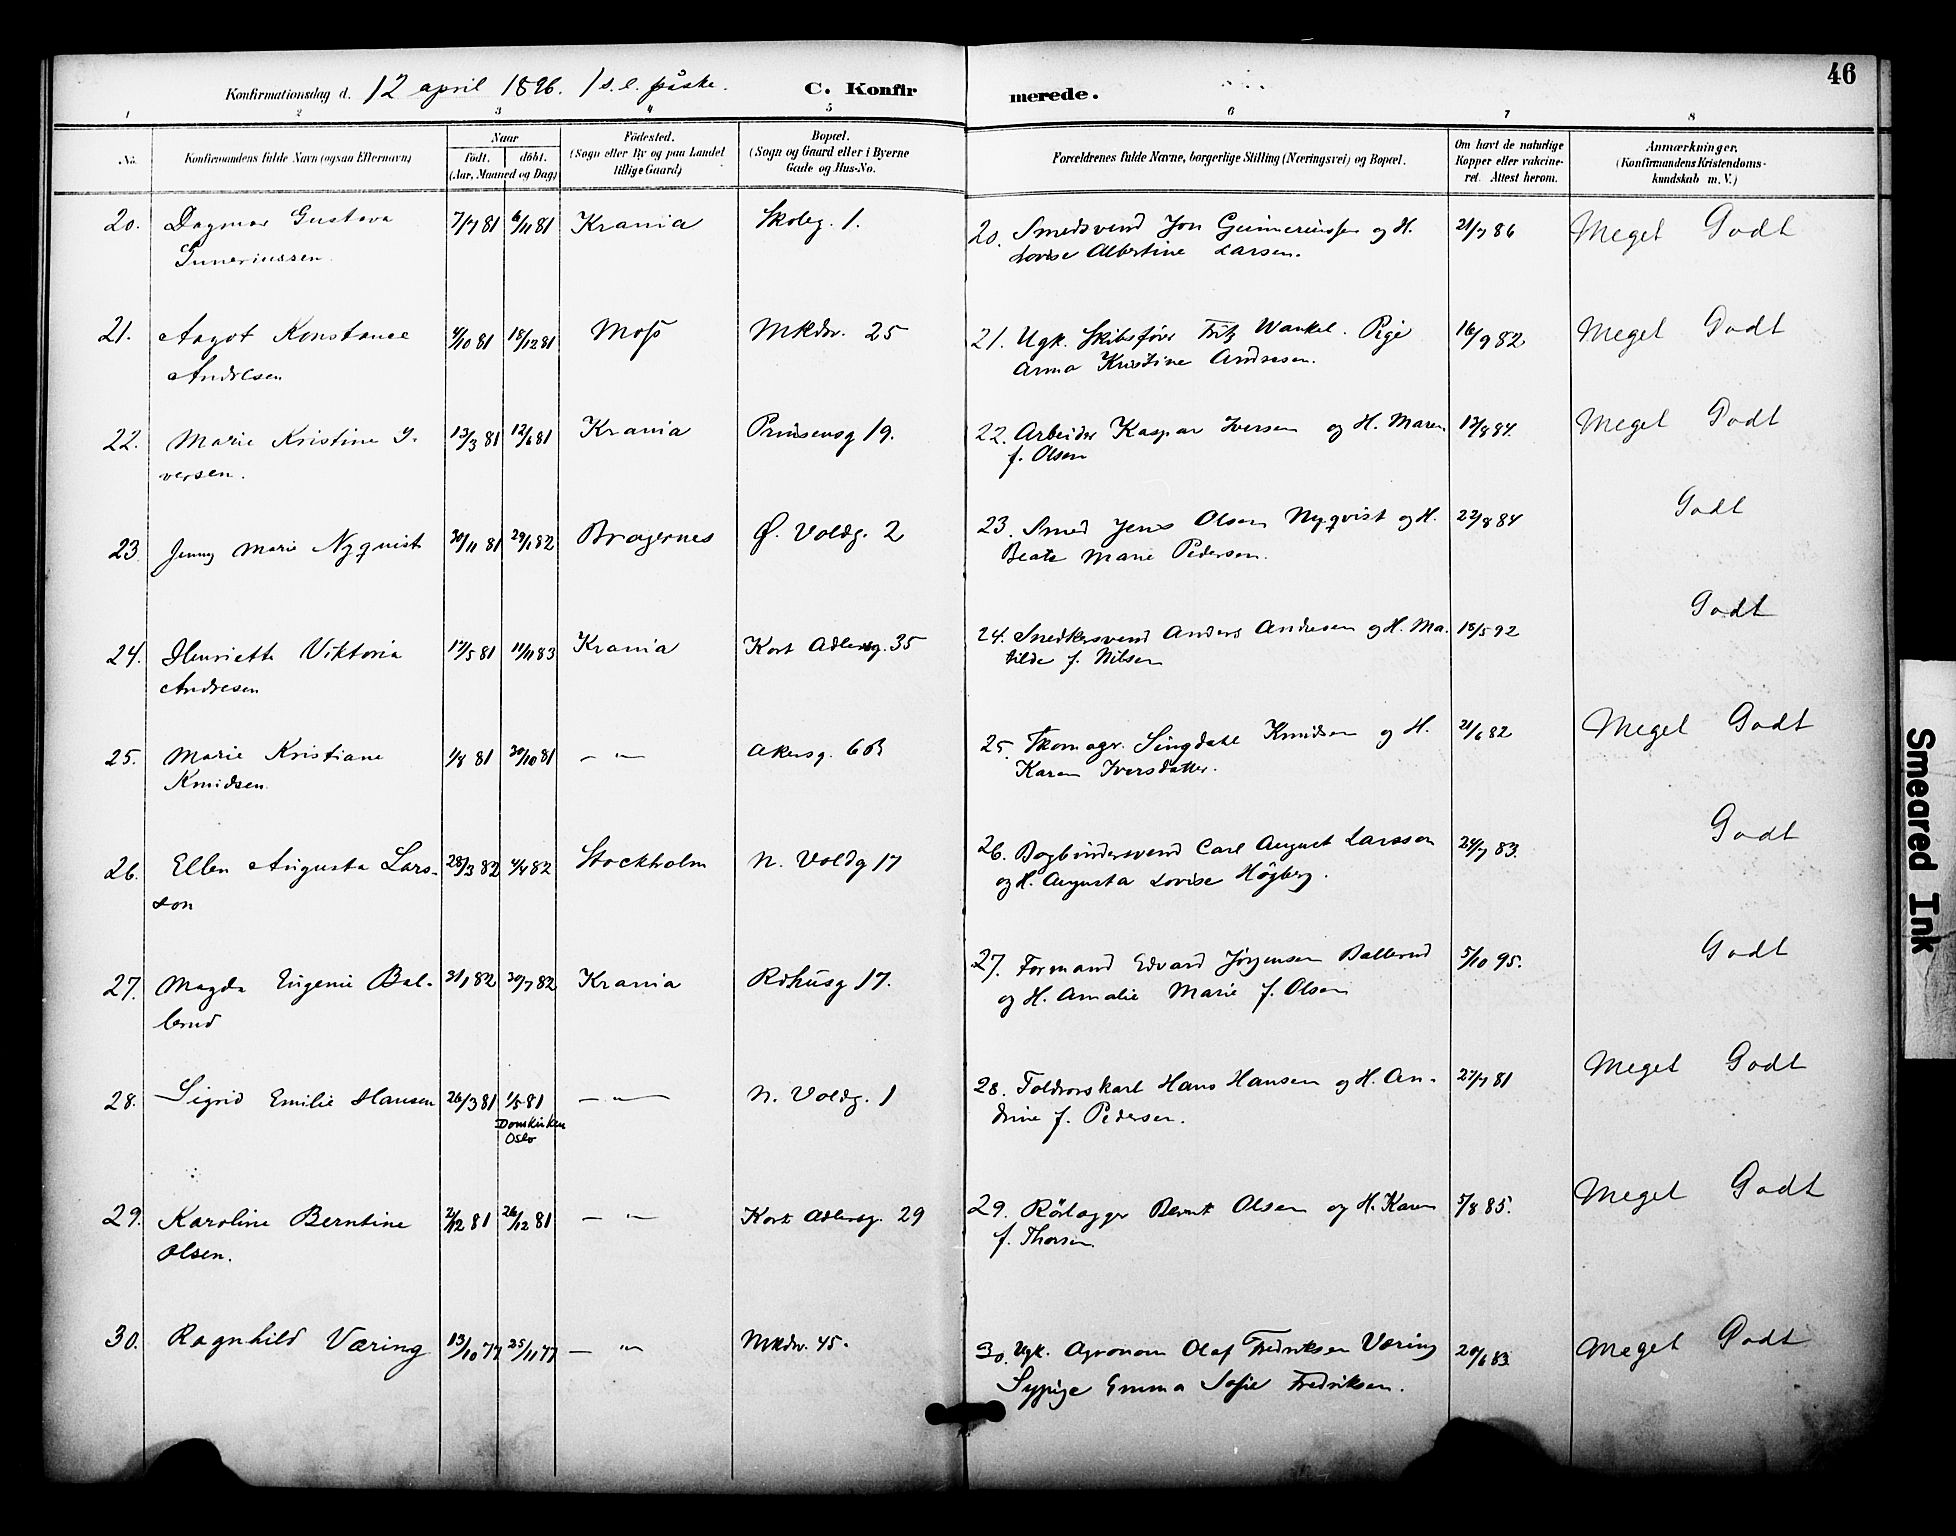 46
Konfirmationsdag d. 12 april 1896. 1 s. e. påske. C. Konfirmerede.
1 2 3 4 5 6 7 8
No. Konfirmandens fulde Navn (ogsaa Efternavn) Naar født. døbt. (Aar, Maaned og Dag) Fødested. (Sogn eller By og paa Landet tillige Gaard) Bopæl. (Sogn og Gaard eller i Byerne Gade og Hus-No. Forældrenes fulde Navne, borgerlige Stilling (Næringsvei) og Bopæl. Om havt de naturlige Kopper eller vakcineret. Attest herom. Anmærkninger. (Konfirmandens Kristendomskundskab m. V.)
20. Dagmar Gustava 7/7 81 6/11 81 Krania Skoleg. 1. 20. Smedsvend Jon Gunneriussen og H. 21/7 86 Meget Godt
Gunneriussen. Lovise Albertine Larsen.
21. Aagot Konstance 4/10 81 18/12 81 Moss Mkdv. 25 21. Ugk. Skibsfører Fritz Wankel. Pige 16/9 82 Meget Godt
Andresen Anna Kristine Andresen.
22. Marie Kristine I- 13/3 81 12/6 81 Krania Prinsensg 19. 22. Arbeider Kaspar Iversen og H. Maren 13/8 84. Meget Godt
versen. f. Olsen
23 Jenny Marie Nyqvist 30/11 81 29/1 82 Bragernes Ø. Voldg. 2 23. Smed Jens Olsen Nyqvist og H. 22/8 84 Godt
Beate Marie Pedersen.
24. Henriette Viktoria 17/5 81 11/11 83 Krania Kort Adlersg. 35 24. Snedkersvend Anders Andresen og H. Ma- 18/5 92 Godt
Andresen tilde f. Nilsen
25. Marie Kristiane 1/8 81 30/10 81 — " — Akersg. 6B 25. Skomagr. Singdahl Knudsen og H. 21/6 82 Meget Godt
Knudsen. Karen Iversdatter.
26. Ellen Augusta Lars- 28/3 82 4/4 82 Stockholm N. Voldg 17 26. Bogbindersvend Carl August Larsson 24/7 83. Godt
son og H. Augusta Lovise Högberg.
27. Magda Eugenie Bal- 31/1 82 30/7 82 Krania Rdhusg 17. 27. Formand Edvard Jørgensen Ballerud 5/10 95. Godt
lerud og H. Amalie Marie f. Olsen
28. Sigrid Emilie Hansen 26/3 81 1/5 81 — " — N. Voldg. 1 28. Toldvorskarl Hans Hansen og H. An- 27/7 81 Meget Godt
Domkirken
Oslo
drine f. Pedersen.
29. Karoline Berntine 2/12 81 26/12 81 — " Kort Adlersg. 29 29. Rörlægger Bernt Olsen og H. Karen 5/8 85. Meget Godt
Olsen. f. Thorsen.
30. Ragnhild Væring 13/10 77 25/11 77 — " Mkdv. 45. 30. Ugk. Agronom Olaf Fredriksen Væring 20/6 83. Meget Godt
Sypige Emma Sofie Fredriksen.
Smeared Ink